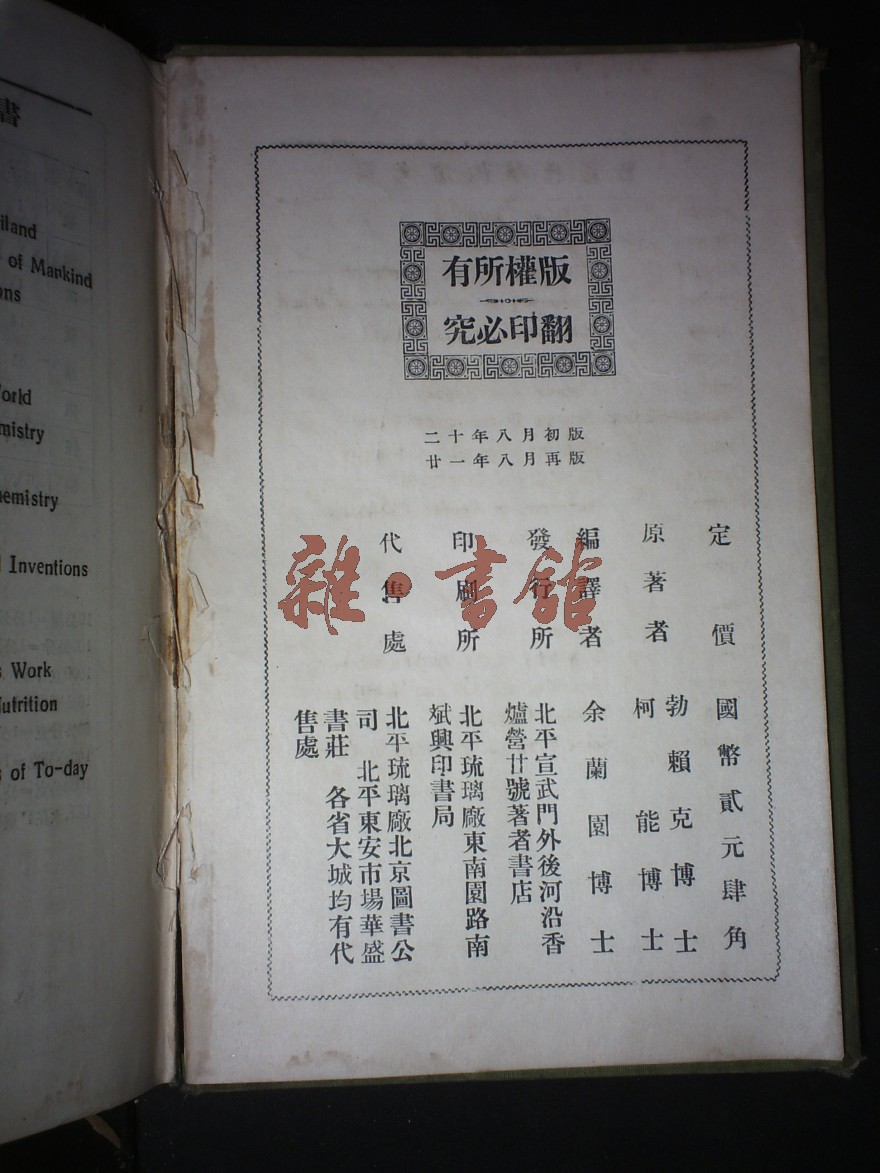 書
iland
of Mankind
ons
orld
mistry
hemistry
Inventions
s Work
Nutrition
s of To-day
版權所有
翻印必究
二十年八月初版
廿一年八月再版
定價 國幣貳元肆角
原著者 勃賴克博士
柯能博士
編譯者 余蘭園博士
發行所 北平宣武門外後河沿香
爐營廿號著者書店
印刷所 北平琉璃廠東南園路南
斌興印書局
代售處 北平琉璃廠北京圖書公
司 北平東安市場華盛
書莊 各省大城均有代
售處
雜·書館